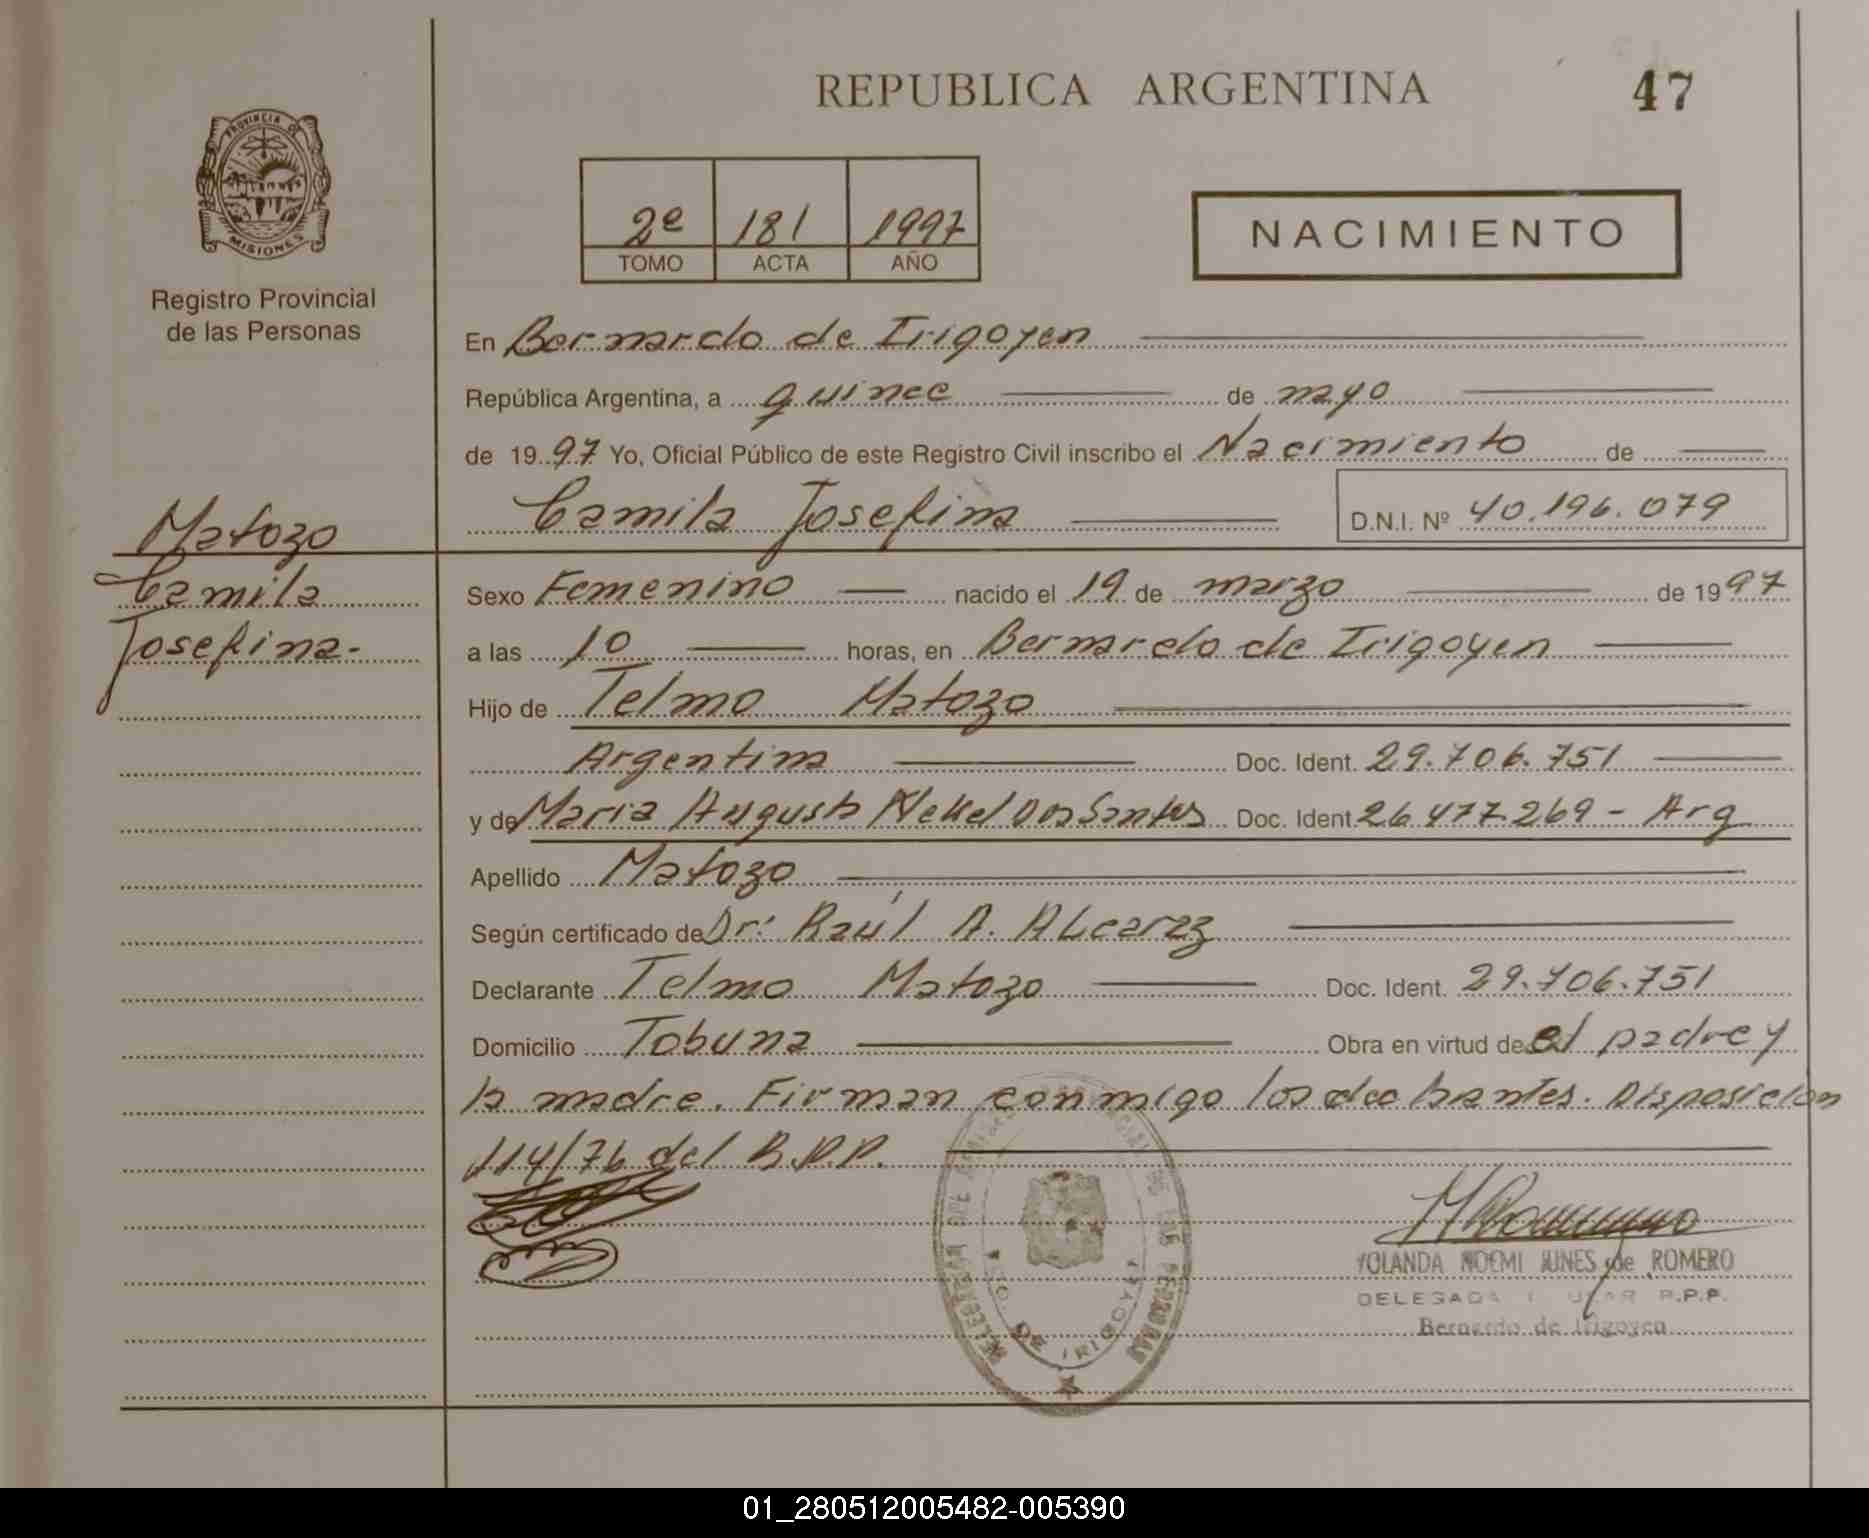 REPUBLICA ARGENTINA
47
PROVINCIA DE
MISIONES
Registro Provincial
de las Personas
2º 181 1997
TOMO ACTA AÑO
NACIMIENTO
En Bernardo de Irigoyen
República Argentina, a quince de mayo
de 1997 Yo, Oficial Público de este Registro Civil inscribo el Nacimiento de
Camila Josefina D.N.I. Nº 40.196.079
Matozo
Camila
Josefina.-
Sexo Femenino nacido el 19 de marzo de 1997
a las 10 horas, en Bernardo de Irigoyen
Hijo de Telmo Matozo
Argentina Doc. Ident. 29.706.751
y de Maria Augusta Nekel Dos Santos Doc. Ident 26.477.269 - Arg
Apellido Matozo
Según certificado de Dr: Raúl A. ALcaraz
Declarante Telmo Matozo Doc. Ident. 29.706.751
Domicilio Tobuna Obra en virtud de el padre y
la madre. Firman conmigo los declarantes. Disposicion
114/76 del R.P.P.
YOLANDA NOEMI JUNES de ROMERO
DELEGADA TITULAR R.P.P.
Bernardo de Irigoyen
DE LAS PERSONAS
BDO. DE IRIGOYEN
01_280512005482-005390